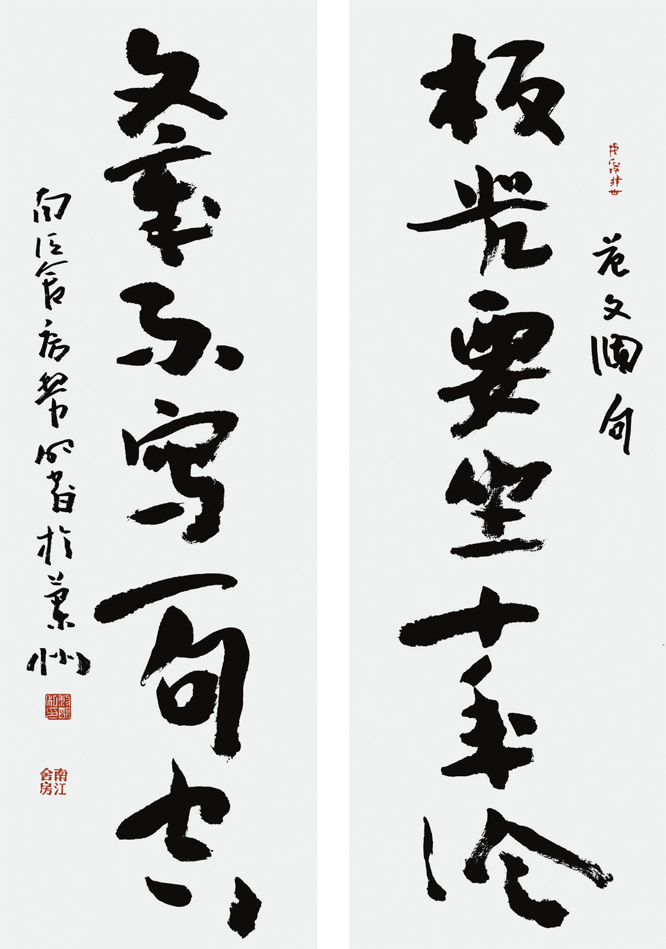 板凳要坐十年冷
范文澜句
文章不写一句空
南江舍房 于兰州
南江舍房